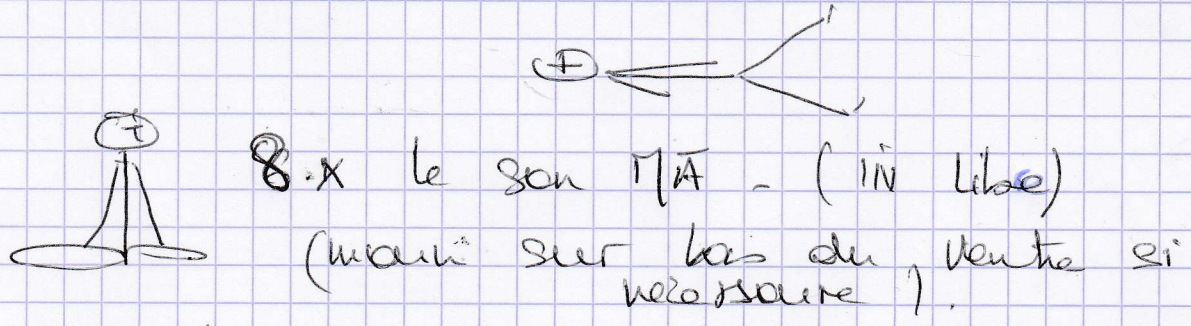 8.x le son MĀ - (IN libre)
(main sur bas du ventre si
nécessaire).